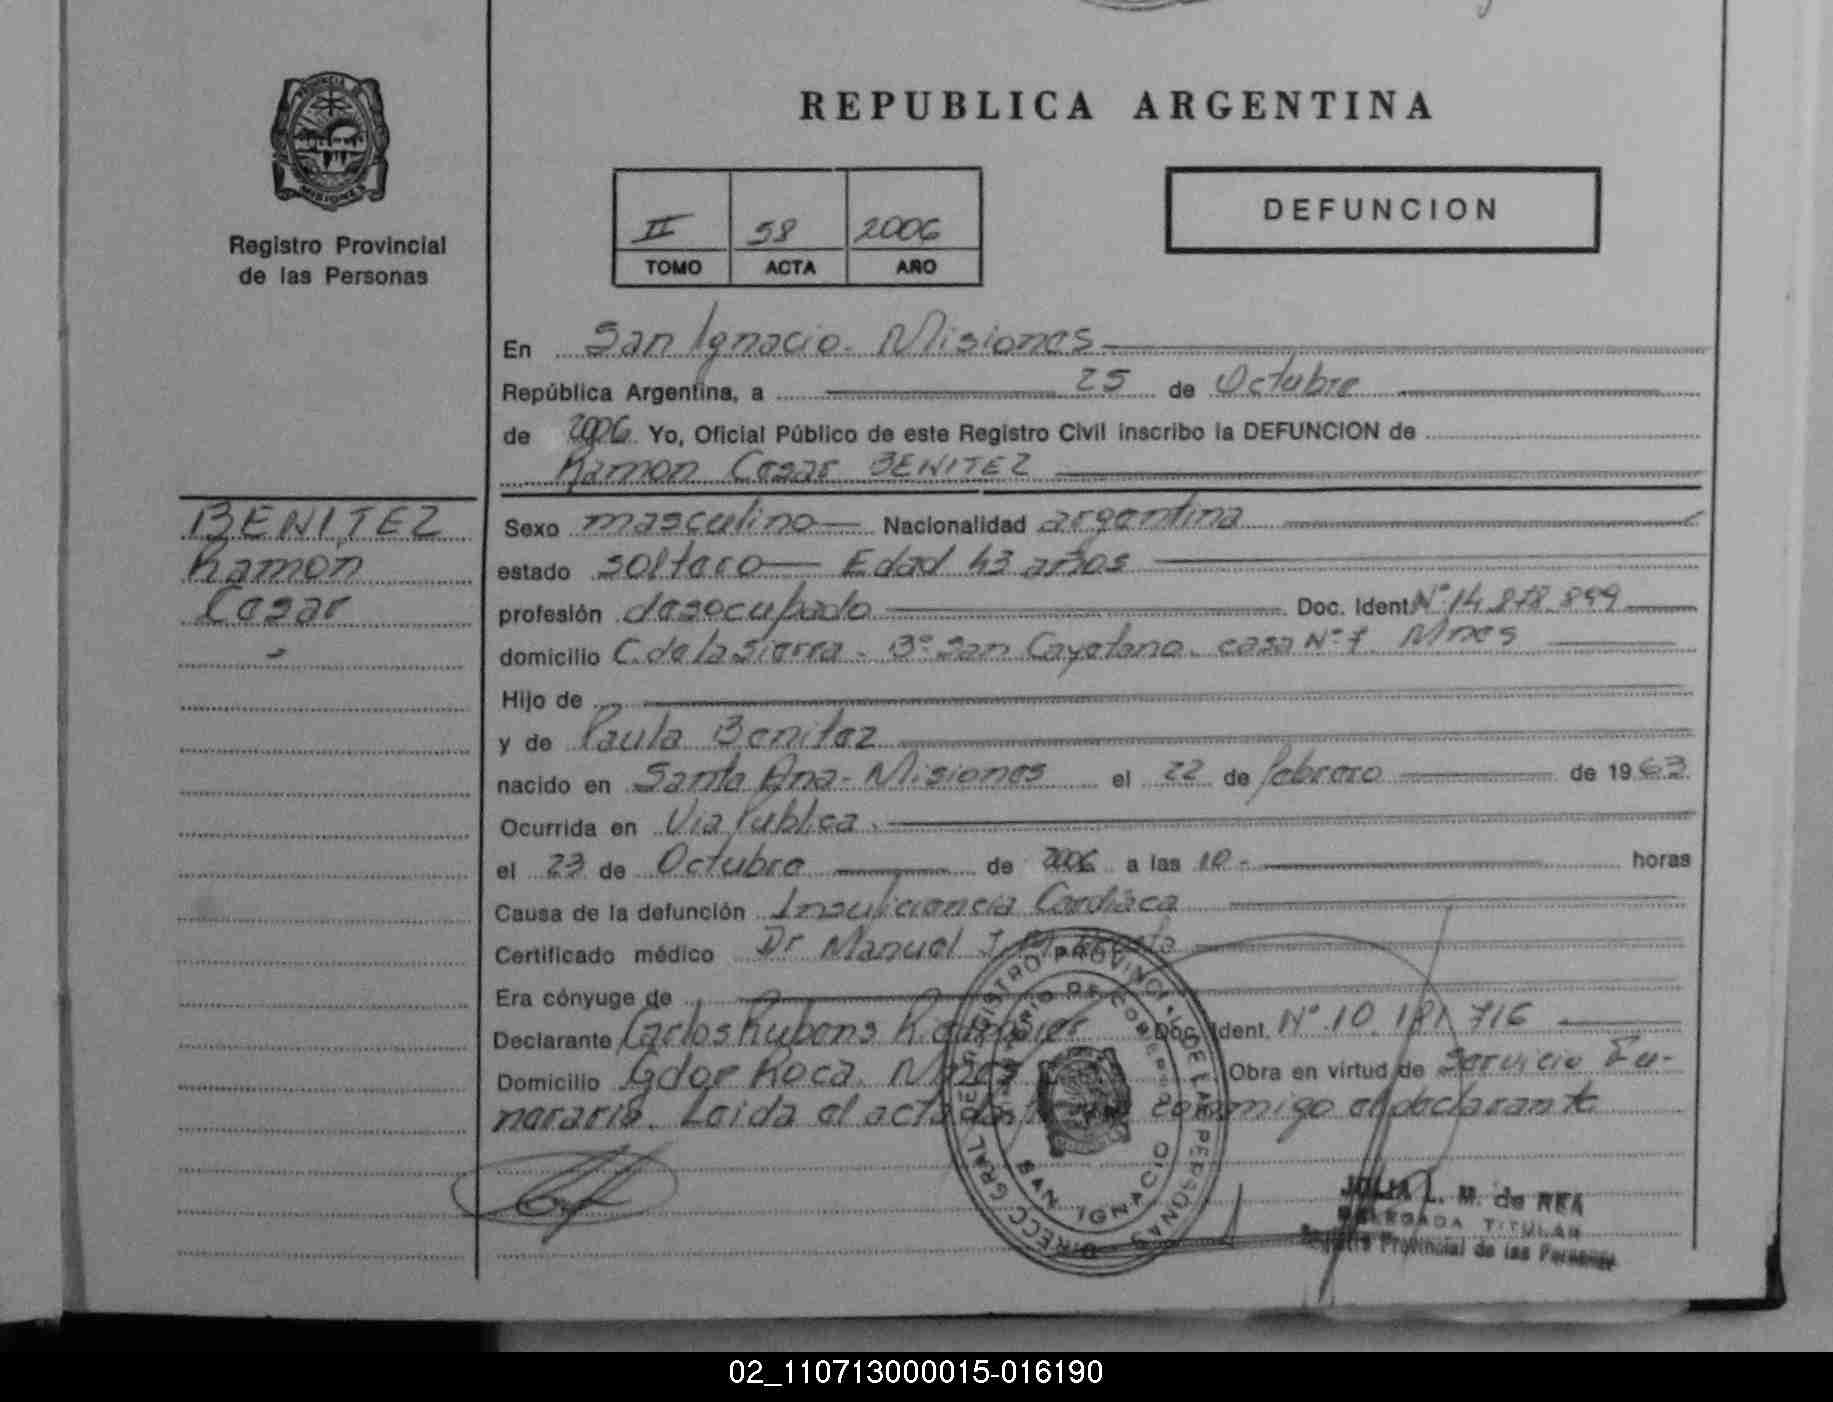 REPUBLICA ARGENTINA
PROVINCIA D
MISIONES
Registro Provincial
de las Personas
II 58 2006
TOMO ACTA AÑO
DEFUNCION
En San Ignacio - Misiones
República Argentina, a 25 de Octubre
de 2006 Yo, Oficial Público de este Registro Civil inscribo la DEFUNCION de
Ramon Cesar BENITEZ
BENITEZ
Ramón
Cesar
Sexo masculino Nacionalidad argentina
estado soltero Edad 43 años
profesión desocupado Doc. Ident Nº 14.878.899
domicilio C. de la Sierra - Bº San Cayetano. casa Nº 7 Mnes
Hijo de
y de Paula Benitez
nacido en Santa Ana - Misiones el 22 de febrero de 1963
Ocurrida en Via Publica.
el 23 de Octubre de 2006 a las 10 - horas
Causa de la defunción Insuficiencia Cardiaca
Certificado médico Dr Manuel
Era cónyuge de
Declarante Carlos Rubens Doc. Ident. Nº 10.181.716
Domicilio Gdor Roca. Mnes Obra en virtud de Servicio Fu-
neraria. Leida el acta la conmigo el declarante
DIRECC GRAL DEL REGISTRO PROVINCIAL DE LAS PERSONAS
MINISTERIO DE GOBIERNO
SAN IGNACIO
JULIA L. M. de REA
DELEGADA TITULAR
Registro Provincial de las Personas
02_110713000015-016190